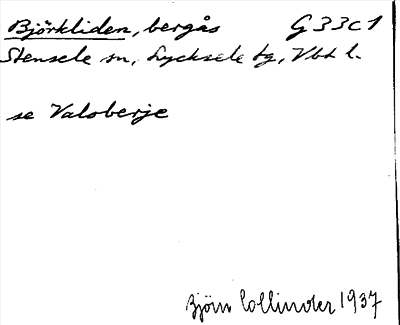 Björkliden, bergås G33c1
Stensele sn, Lycksele tg, Vbt l.
se Valoberje
Björn Collinder 1937